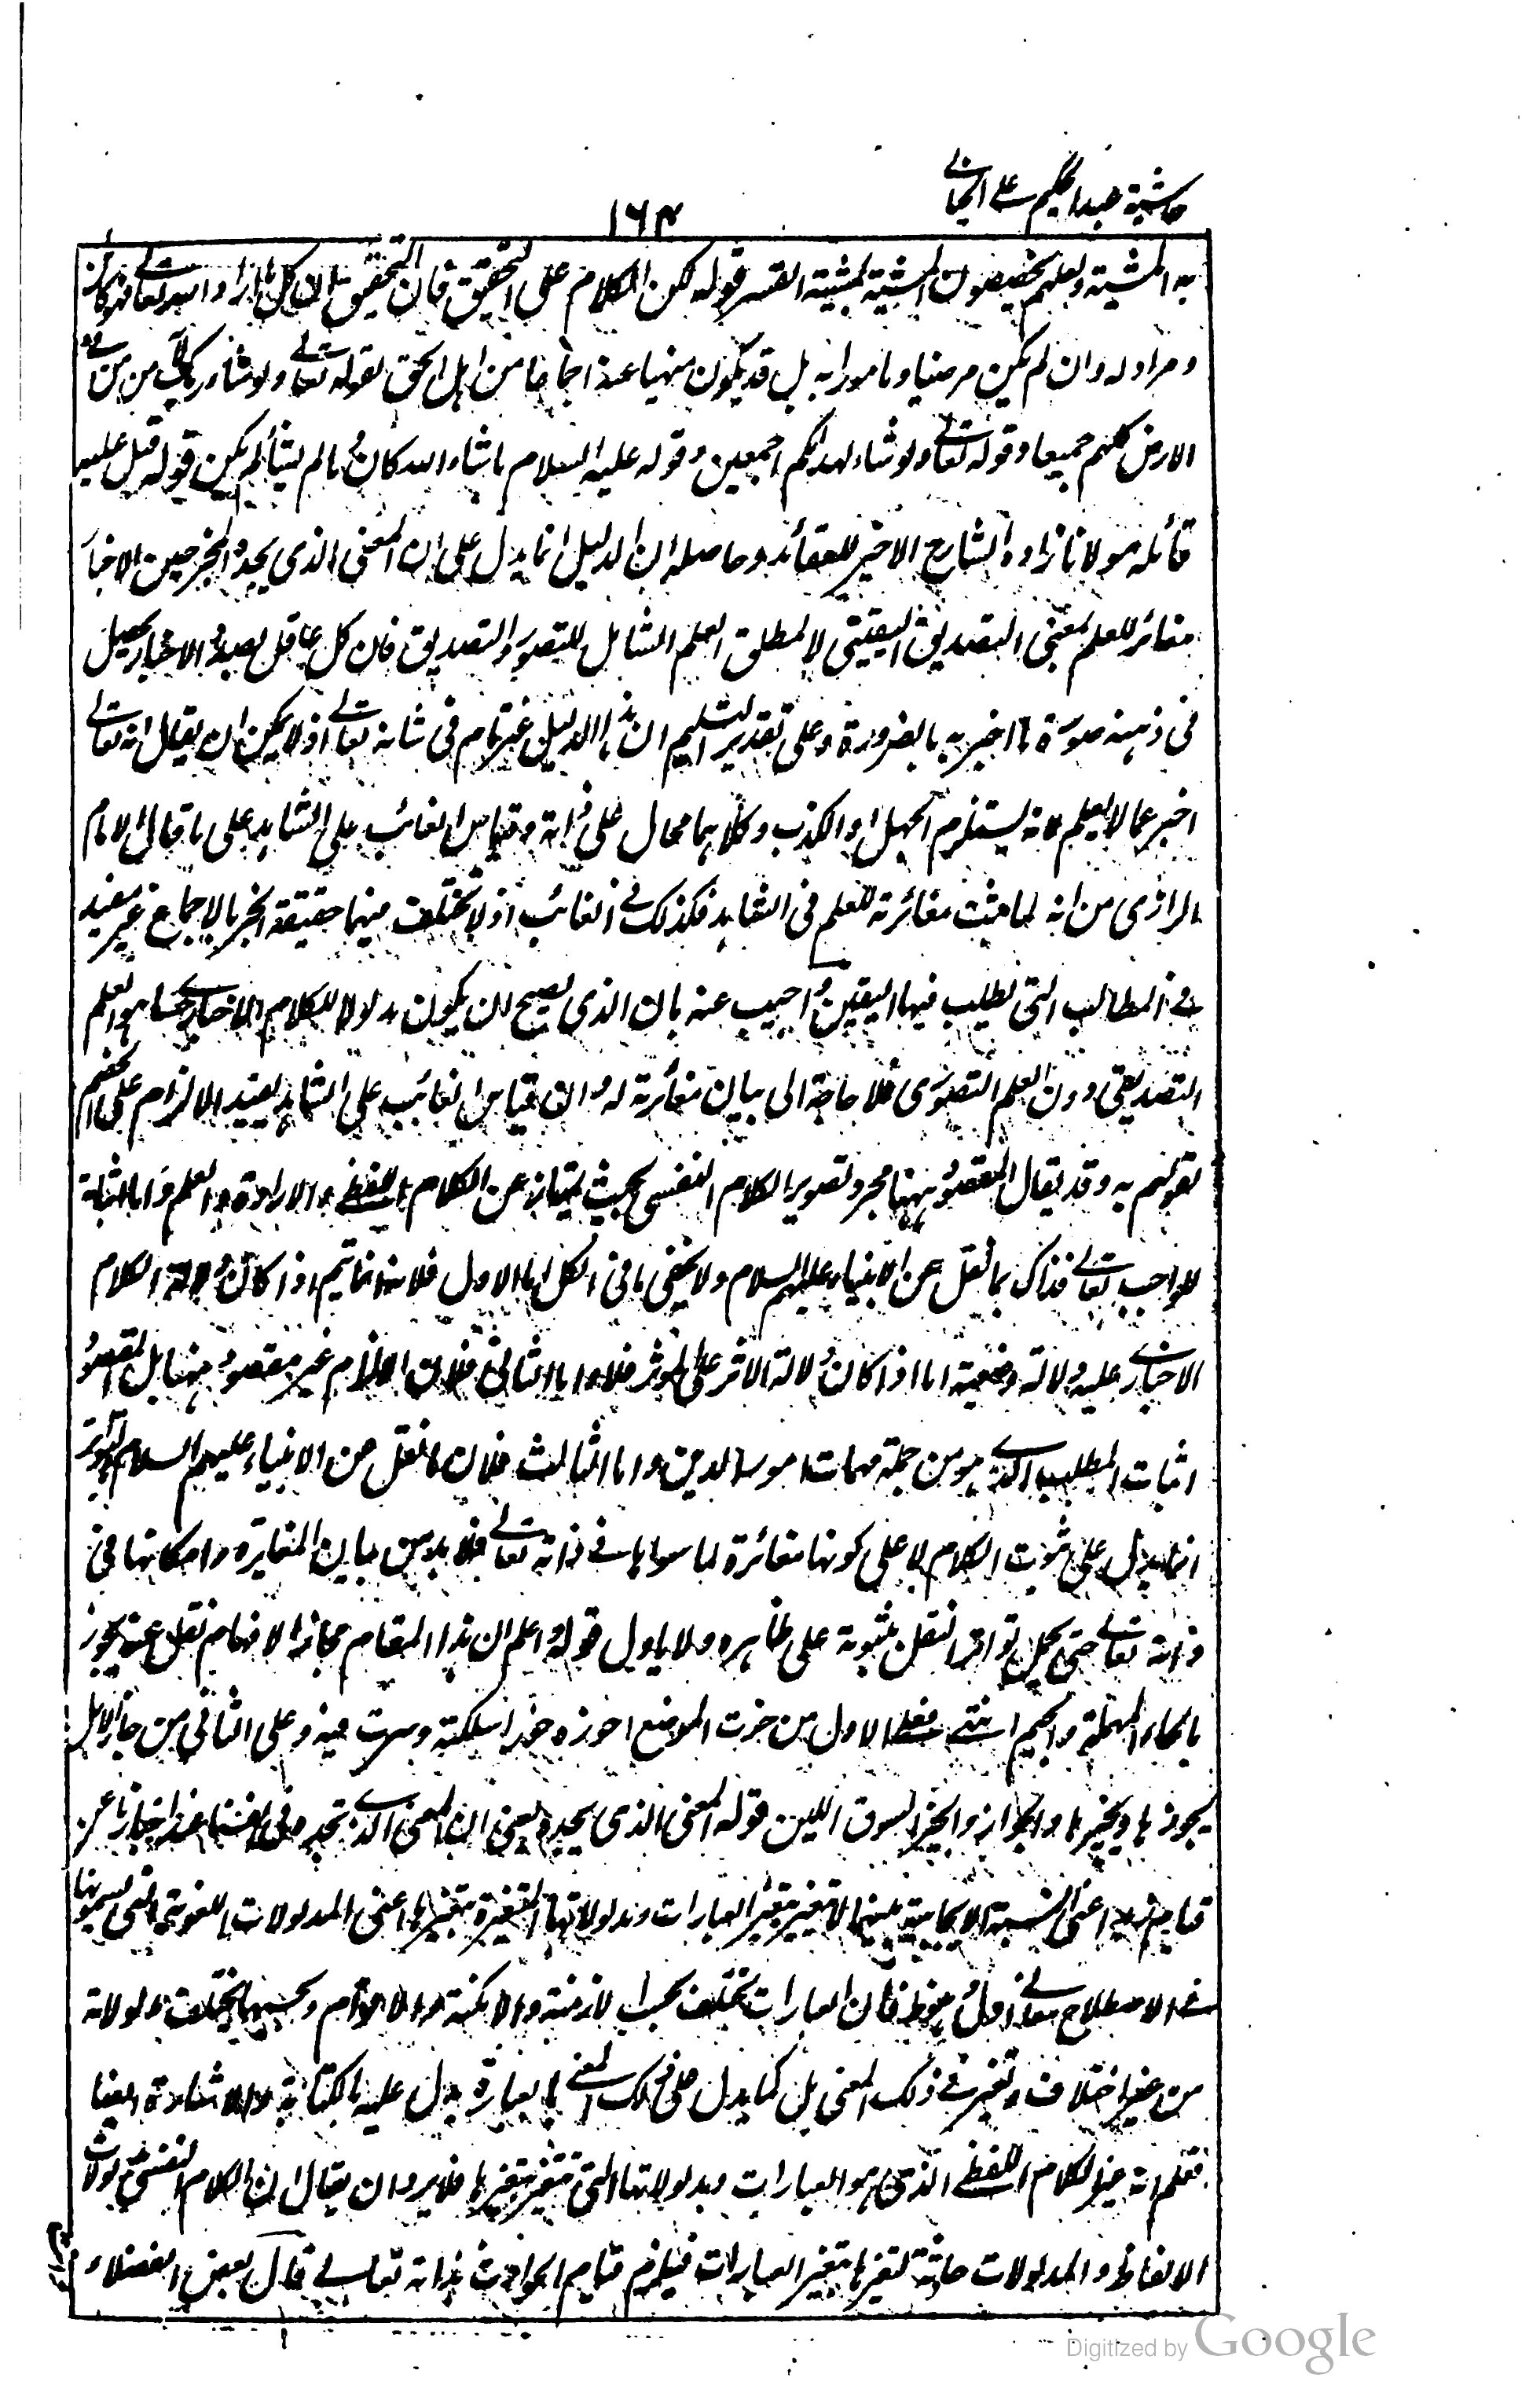 حاشية عبد الحكيم على الخيالي
١٦٣
به المشية ولعلهم يخصصون المشية بمشية القسر قوله لكن الكلام على التحقيق فان التحقيق ان كل ما اراد الله تعالى فهو كائن
ومراد له وان لم يكن مرضيا ومامورا به بل قد يكون منهيا عنه اجماعا من اهل الحق لقوله تعالى ولو شاء ربك لآمن من في
الارض كلهم جميعا وقوله تعالى ولو شاء لهداكم اجمعين وقوله عليه السلام ما شاء الله كان وما لم يشأ لم يكن قوله قيل عليه
قائله مولانا زاده الشارح الاخير للعقائد وحاصله ان الدليل انما يدل على ان المعنى الذي يجده المخبر حين الاخبار
مغائر للعلم بمعنى التصديق اليقيني لا لمطلق العلم الشامل للتصور والتصديق فان كل عاقل تصدى الاخبار يحصل
في ذهنه صورة ما اخبر به بالضرورة وعلى تقدير التسليم ان هذا الدليل غير تام في شانه تعالى اذ لا يمكن ان يقال انه تعالى
اخبر عما لا يعلم لانه يستلزم الجهل او الكذب وكلاهما محال على ذاته وقياس الغائب على الشاهد على ما قال الامام
الرازي من انه لما ثبت مغائرته للعلم في الشاهد فكذلك في الغائب اذ لا تختلف فيهما حقيقة الخبر بالاجماع غير مفيد
في المطالب التي يطلب فيها اليقين واجيب عنه بان الذي يصلح لان يكون مدلولا للكلام الاخباري انما هو العلم
التصديقي دون العلم التصوري فلا حاجة الى بيان مغائرته له وان قياس الغائب على الشاهد يفيد الالزام على الخصم
لقولهم به وقد يقال المقصود ههنا مجرد تصوير الكلام النفسي بحيث يمتاز عن الكلام اللفظي والارادة والعلم واما اثباته
للواجب تعالى فذاك بما نقل عن الانبياء عليهم السلام ولا يخفى ما في الكل اما الاول فلانه انما يتم اذا كان دلالة الكلام
الاخباري عليه دلالة وضعية اما اذا كان دلالة الاثر على المؤثر فلا واما الثاني فلان الالزام غير مقصود ههنا بل المقصود
اثبات المطلب الذي هو من جملة مهمات امور الدين واما الثالث فلان ما نقل من الانبياء عليهم السلام بالتواتر
انما يدل على ثبوت الكلام لا على كونها مغائرة لما سواها في ذاته تعالى فلا بد من بيان المغايرة وامكانها في
ذاته تعالى حتى يحمل تواتر النقل بثبوته على ظاهره ولا ياول قوله واعلم ان هذا المقام محاز الافهام نقل عنه يجوز
بالحاء المهملة والجيم انتهى فعلى الاول من حزت الموضع احوزه حوزا سلكته وسرت فيه وعلى الثاني من جاز الابل
يجوزها ويجيزها والجواز والحيز السوق اللين قوله المعنى الذي يجده يعني ان المعنى الذي تجده في انفسنا عند اخبارنا عن
قيام زيد اعني النسبة الايجابية بينهما لا تتغير بتغير العبارات ومدلولاتها المتغيرة بتغيرها اعني المدلولات اللغوية التي يسمونها
في الاصطلاح معاني اول ملفوظ فان العبارات تختلف بحسب الازمنة والامكنة والاقوام وبحسبها يختلف مدلولاته
من غير اختلاف وتغير في ذلك المعنى بل كما يدل على ذلك المعنى بالعبارة يدل عليه بالكتابة والاشارة ايضا
فعلم انه غير الكلام اللفظي الذي هو العبارات ومدلولاتها التي تتغير بتغيرها فلا يرد ان يقال ان الكلام النفسي مدلولات
الالفاظ والمدلولات حادثة لتغيرها بتغير العبارات فيلزم قيام الحوادث بذاته تعالى قال بعض الفضلاء